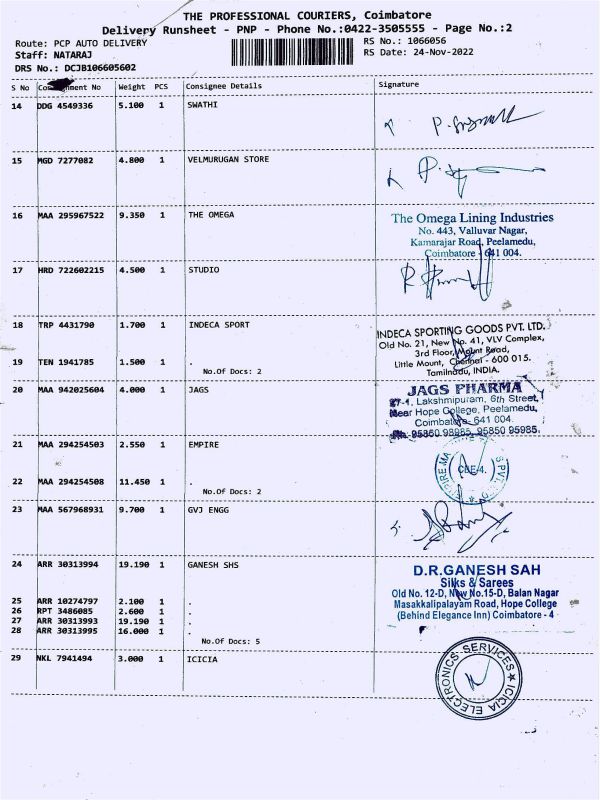 THE PROFESSIONAL COURIERS, Coimbatore
Delivery Runsheet - PNP - Phone No.:0422-3505555 - Page No.:2
Route: PCP AUTO DELIVERY
RS No.: 1066056
Staff: NATARAJ
RS Date: 24-Nov-2022
DRS No.: DCJB106605602
S No Consignment No Weight PCS Consignee Details Signature
14 DDG 4549336 5.100 1 SWATHI
15 MGD 7277082 4.800 1 VELMURUGAN STORE
16 MAA 295967522 9.350 1 THE OMEGA
The Omega Lining Industries
No. 443, Valluvar Nagar,
Kamarajar Road, Peelamedu,
Coimbatore - 641 004.
17 HRD 722602215 4.500 1 STUDIO
18 TRP 4431790 1.700 1 INDECA SPORT
INDECA SPORTING GOODS PVT. LTD.
Old No. 21, New No. 41, VLV Complex,
3rd Floor, Mount Road,
Little Mount, Chennai - 600 015.
Tamilnadu, INDIA.
19 TEN 1941785 1.500 1 .
No.Of Docs: 2
20 MAA 942025604 4.000 1 JAGS
JAGS PHARMA
27-1, Lakshmipuram, 6th Street,
Near Hope College, Peelamedu,
Coimbatore - 641 004.
Ph: 95850 98985, 95850 95985.
21 MAA 294254503 2.550 1 EMPIRE
CBE-4.
22 MAA 294254508 11.450 1 .
No.Of Docs: 2
23 MAA 567968931 9.700 1 GVJ ENGG
24 ARR 30313994 19.190 1 GANESH SHS
D.R.GANESH SAH
Silks & Sarees
Old No. 12-D, New No.15-D, Balan Nagar
Masakkalipalayam Road, Hope College
(Behind Elegance Inn) Coimbatore - 4
25 ARR 10274797 2.100 1 .
26 RPT 3486085 2.600 1 .
27 ARR 30313993 19.190 1 .
28 ARR 30313995 16.000 1 .
No.Of Docs: 5
29 NKL 7941494 3.000 1 ICICIA
ICICIA ELECTRONICS SERVICES